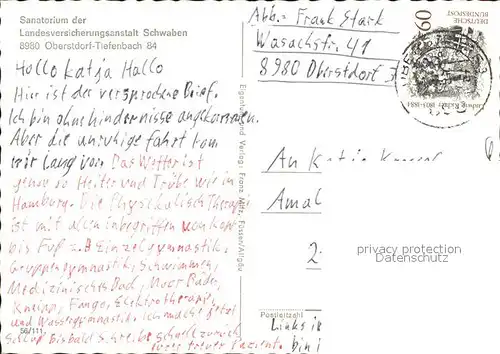 Sanatorium der
Landesversicherungsanstalt Schwaben
8980 Oberstdorf-Tiefenbach 84
Hallo Katja Hallo
Hier ist der versprochene Brief.
Ich bin ohne hindernisse angekommen.
Aber die unruhige fahrt kam
mir lang vor. Das Wetter ist
genau so Heiter und Trübe wie in
Hamburg. Die Physikalisch Therapie
ist mit allen Inbegriffen von kopf
bis Fuß z.B Einzelgymnastik.
Gruppengymnastik, Schwimmen,
Medizinisches Bad, Moor Bäder,
Kneipp, Fango, Elektrotherapie,
und Wassergymnastik. Ich mache jetzt
56/111
Schluß bis bald Schreibe schnell zurück
euer treuer Patient.
Eigentum und Verlag: Franz Milz, Füssen/Allgäu
Abs.- Frank Stark
Wasachstr. 41
8980 Oberstdorf
60
DEUTSCHE
BUNDESPOST
Ludwig Richter 1803-1884
An Katja
Amal
2
privacy protection
Datenschutz
Postleitzahl
Links
bin i